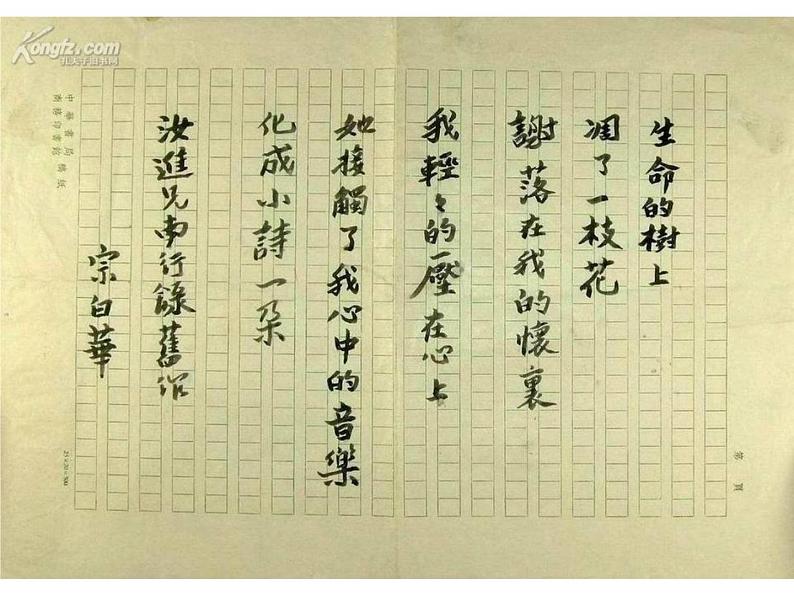 生命的樹上
凋了一枝花
謝落在我的懷裏
我輕々的壓在心上
她接觸了我心中的音樂
化成小詩一朶
汝進兄南行錄舊作
宗白華
中華書局
商務印書館
稿紙
25×20=500
第 頁
Kongfz.com
孔夫子旧书网